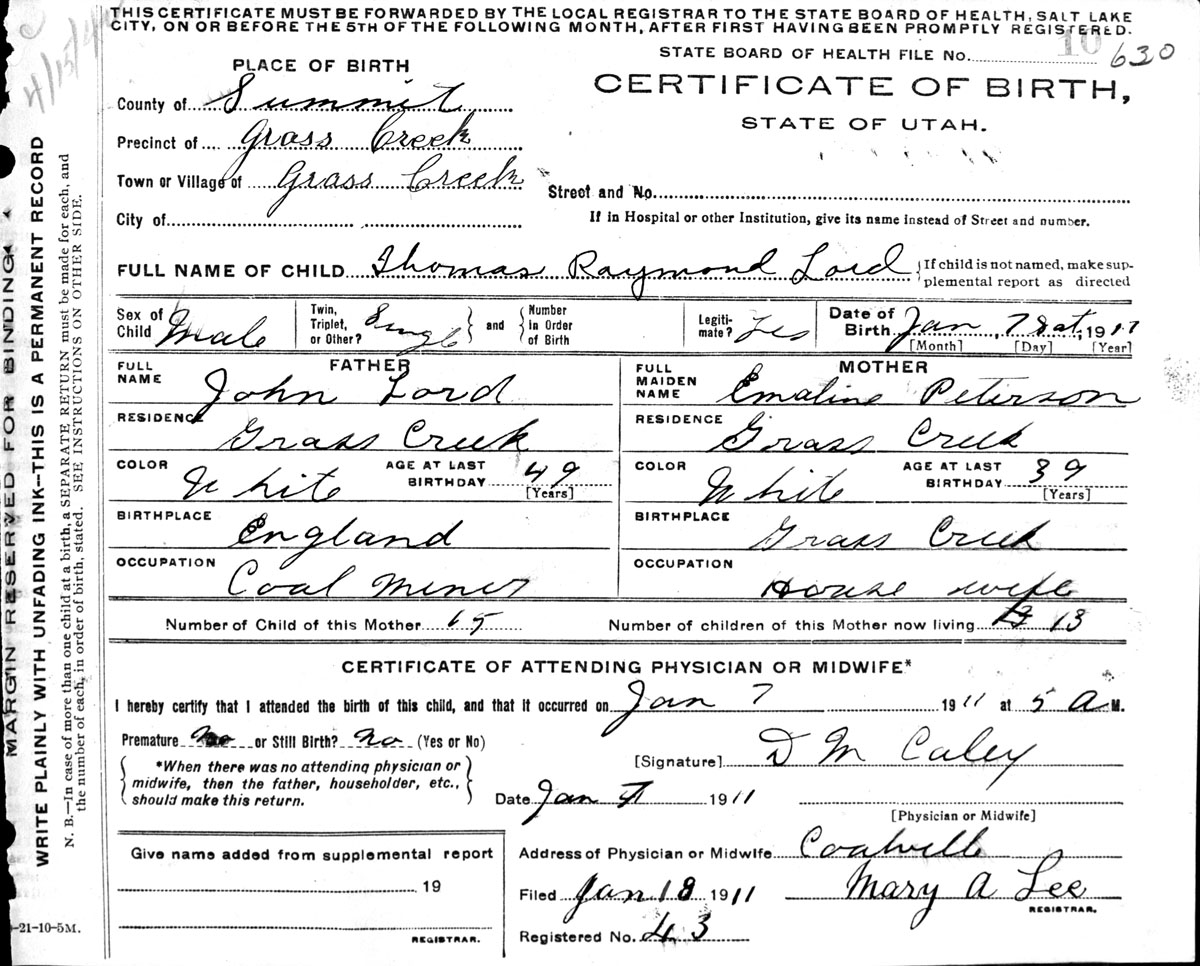 THIS CERTIFICATE MUST BE FORWARDED BY THE LOCAL REGISTRAR TO THE STATE BOARD OF HEALTH, SALT LAKE
CITY, ON OR BEFORE THE 5TH OF THE FOLLOWING MONTH, AFTER FIRST HAVING BEEN PROMPTLY REGISTERED.
10
STATE BOARD OF HEALTH FILE No. 630
PLACE OF BIRTH
CERTIFICATE OF BIRTH,
STATE OF UTAH.
County of Summit
Precinct of Grass Creek
Town or Village of Grass Creek
Street and No.
City of
If in Hospital or other Institution, give its name instead of Street and number.
FULL NAME OF CHILD Thomas Raymond Lord
If child is not named, make sup-
plemental report as directed
Sex of Child Male
Twin, Triplet, or Other? Single and Number in Order of Birth
Legiti-mate? Yes
Date of Birth Jan 7 Sat, 1911
[Month] [Day] [Year]
FATHER
MOTHER
FULL NAME John Lord
FULL MAIDEN NAME Emaline Peterson
RESIDENCE Grass Creek
RESIDENCE Grass Creek
COLOR White AGE AT LAST BIRTHDAY 49 [Years]
COLOR White AGE AT LAST BIRTHDAY 39 [Years]
BIRTHPLACE England
BIRTHPLACE Grass Creek
OCCUPATION Coal Miner
OCCUPATION House wife
Number of Child of this Mother 15
Number of children of this Mother now living 13
CERTIFICATE OF ATTENDING PHYSICIAN OR MIDWIFE*
I hereby certify that I attended the birth of this child, and that it occurred on Jan 7 1911 at 5 A M.
Premature No or Still Birth? No (Yes or No)
*When there was no attending physician or
midwife, then the father, householder, etc.,
should make this return.
[Signature] D M Caley
Date Jan 7 1911
[Physician or Midwife]
Give name added from supplemental report
19
REGISTRAR.
Address of Physician or Midwife Coalville
Filed Jan 18 1911 Mary A Lee
REGISTRAR.
Registered No. 43
MARGIN RESERVED FOR BINDING
WRITE PLAINLY WITH UNFADING INK--THIS IS A PERMANENT RECORD
N. B.—In case of more than one child at a birth, a SEPARATE RETURN must be made for each, and
the number of each, in order of birth, stated. SEE INSTRUCTIONS ON OTHER SIDE.
-21-10-5M.